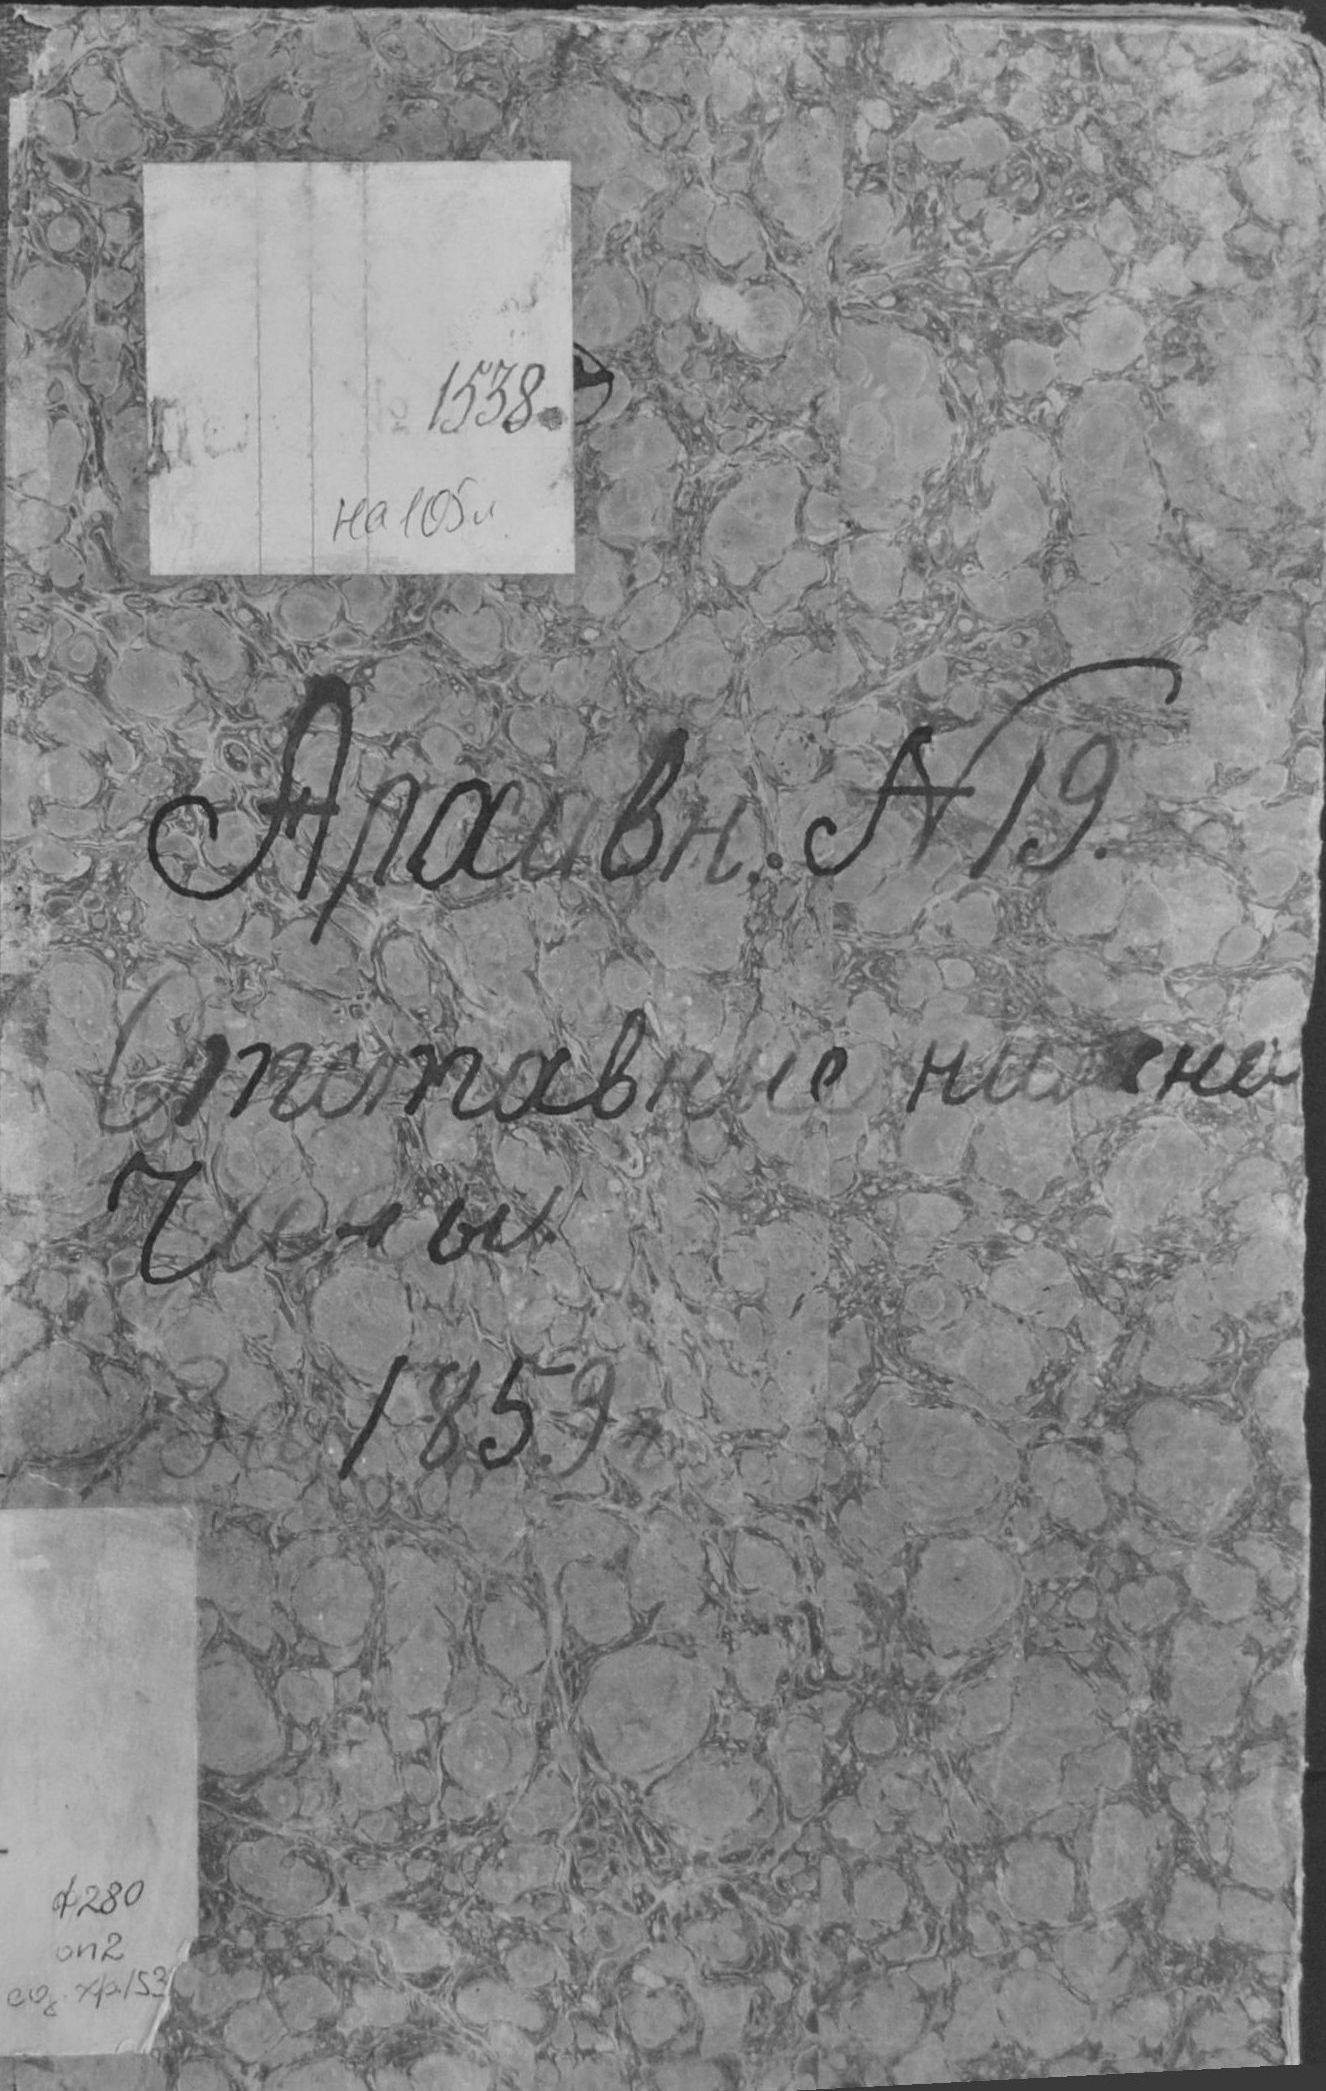 1538.
на 105 л
Архивн. № 19.
Отставные нижние
Чины
1859
ф 280
оп 2
ед. хр. 153